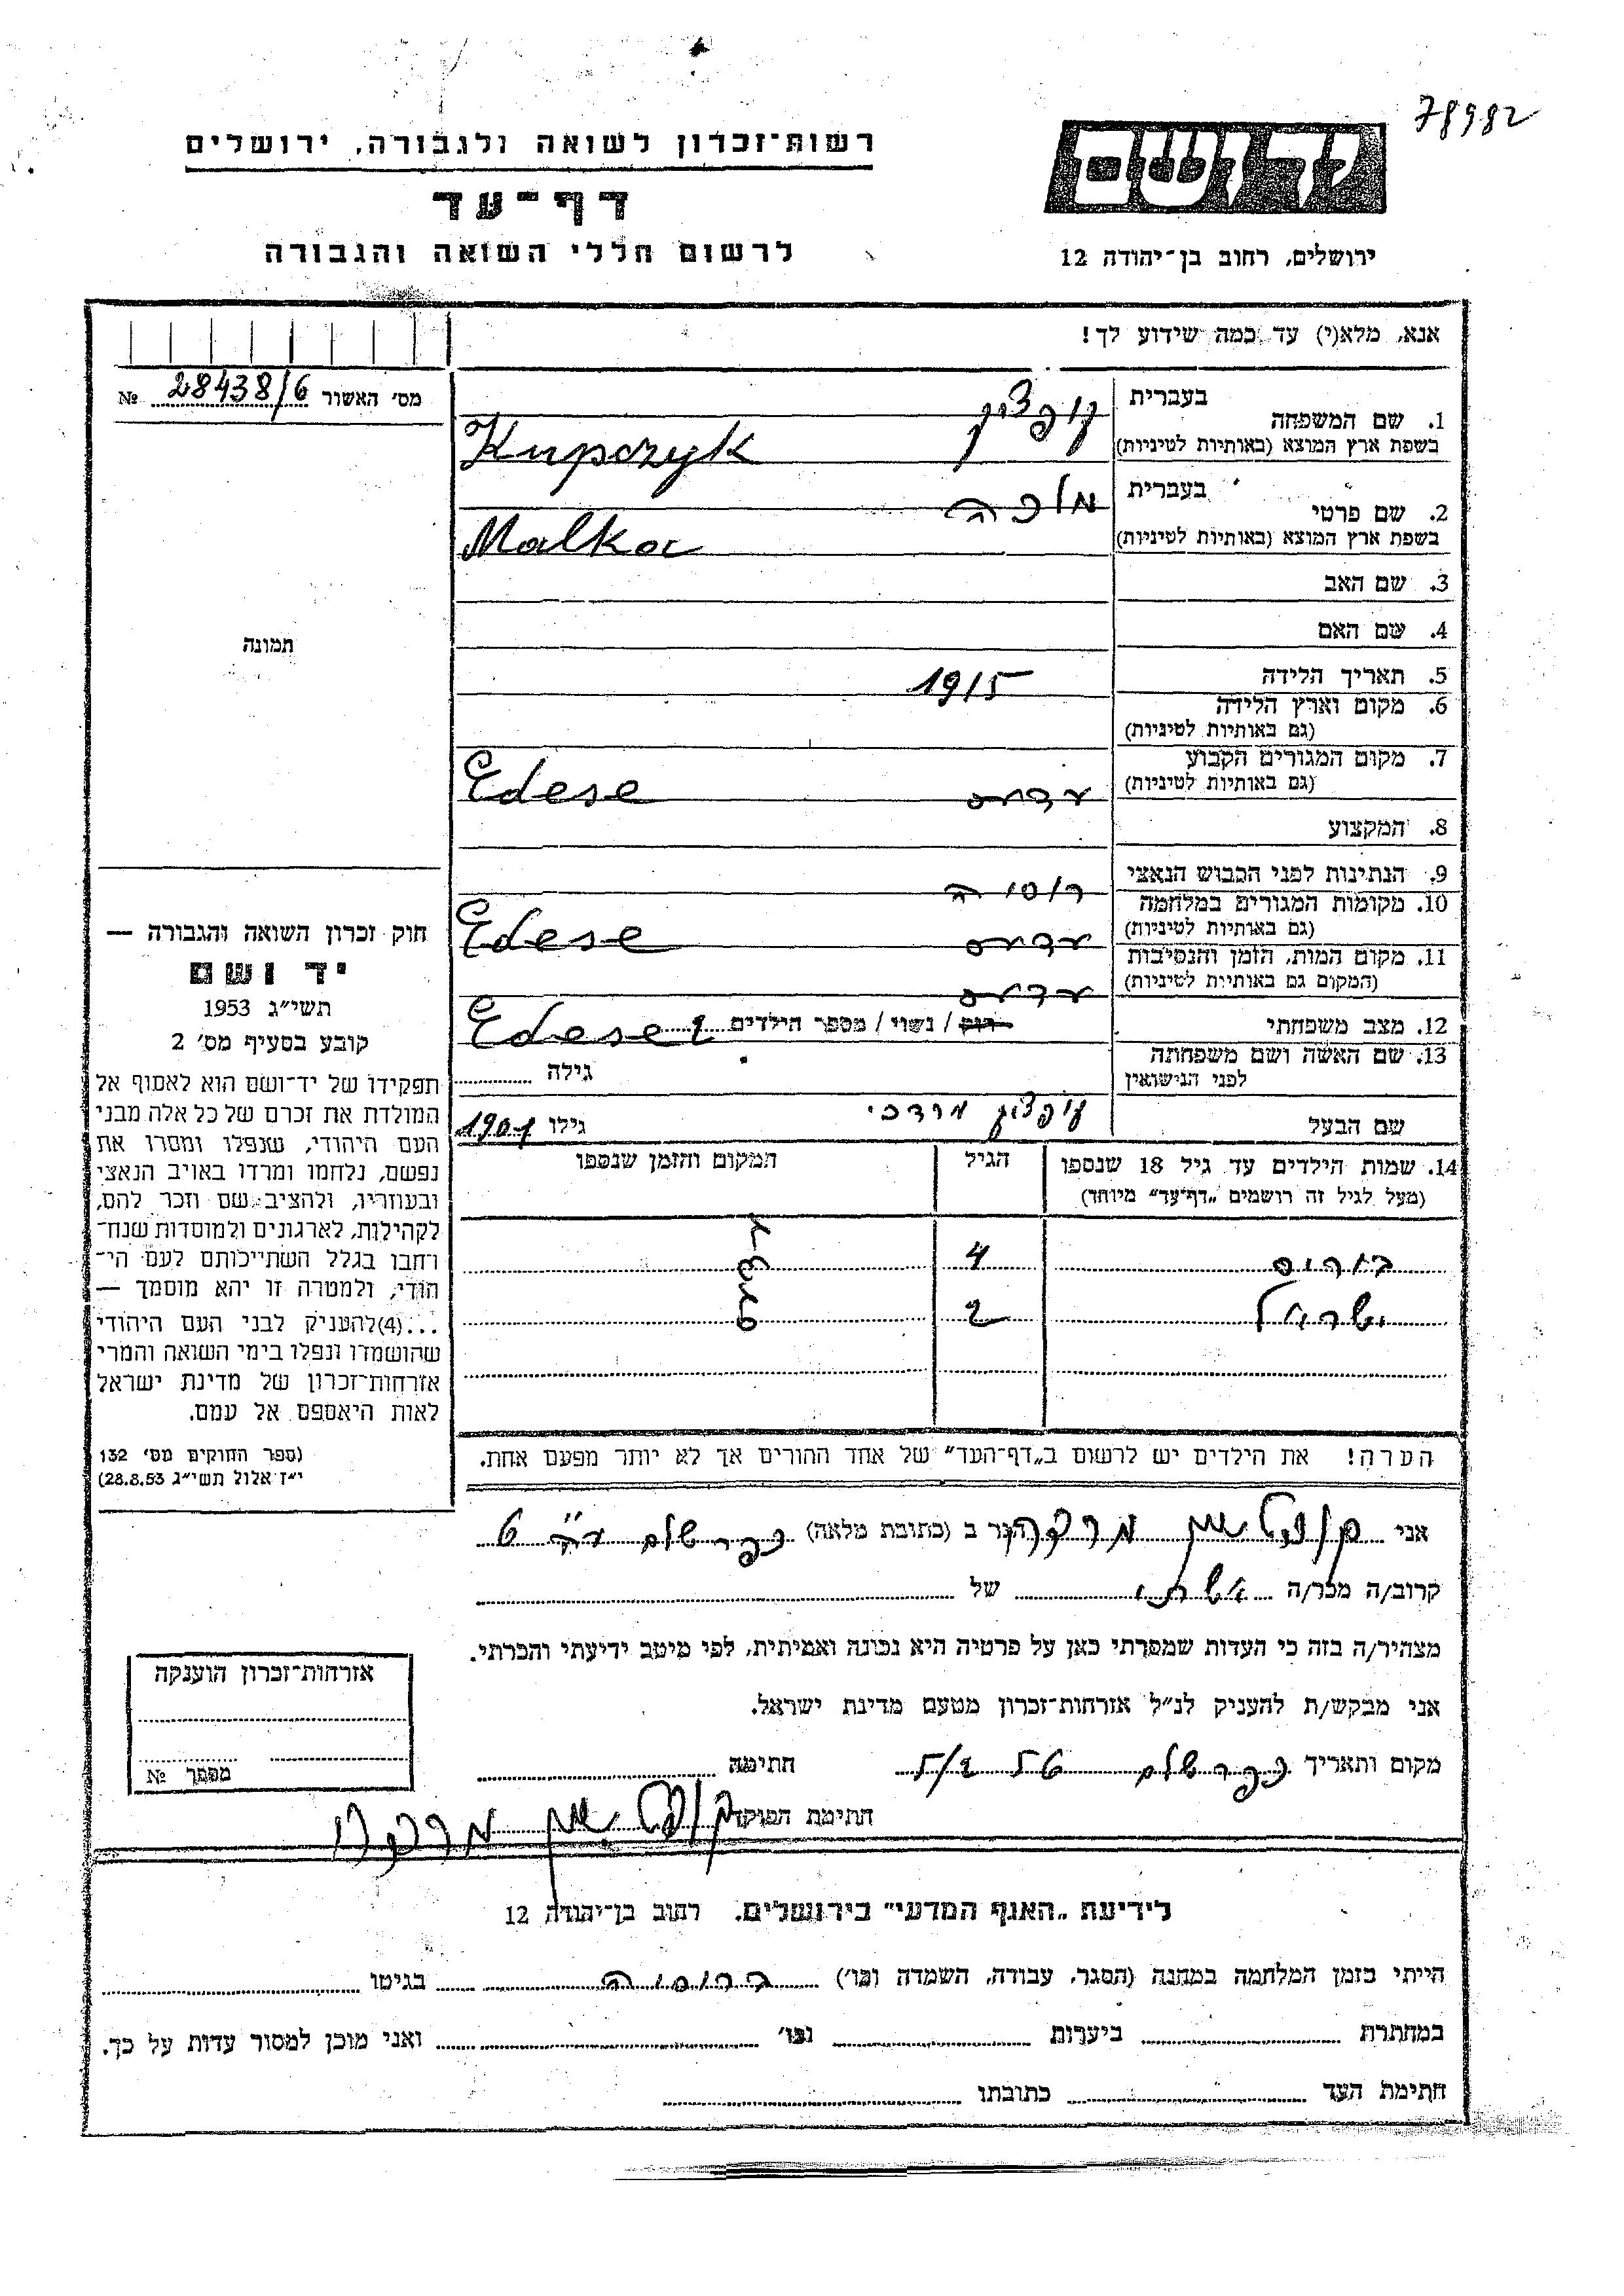 78982
יד ושם
רשות־זכרון לשואה ולגבורה, ירושלים
דף־עד
לרשום חללי השואה והגבורה
ירושלים, רחוב בן־יהודה 12
אנא, מלא(י) עד כמה שידוע לך!
מס׳ האשור 28438/6 №
בעברית
1. שם המשפחה
בשפת ארץ המוצא (באותיות לטיניות) Kupczyk
בעברית מלכה
2. שם פרטי
בשפת ארץ המוצא (באותיות לטיניות) Malka
3. שם האב
4. שם האם
תמונה
5. תאריך הלידה 1915
6. מקום וארץ הלידה
(גם באותיות לטיניות)
7. מקום המגורים הקבוע
(גם באותיות לטיניות) Edese
8. המקצוע
9. הנתינות לפני הכבוש הנאצי רוסיה
10. מקומות המגורים במלחמה
(גם באותיות לטיניות) Edese
11. מקום המות, הזמן והנסיבות
(המקום גם באותיות לטיניות)
Edese
12. מצב משפחתי רווק / נשוי / מספר הילדים 2
13. שם האשה ושם משפחתה
לפני הנישואין גילה
שם הבעל מרדכי גילו
14. שמות הילדים עד גיל 18 שנספו הגיל המקום והזמן שנספו
(מעל לגיל זה רושמים „דף־עד״ מיוחד)
בוריס 4
ישראל 2
הערה! את הילדים יש לרשום ב„דף־העד״ של אחד ההורים אך לא יותר מפעם אחת.
חוק זכרון השואה והגבורה —
יד ושם
תשי״ג 1953
קובע בסעיף מס׳ 2
תפקידו של יד־ושם הוא לאסוף אל
המולדת את זכרם של כל אלה מבני
העם היהודי, שנפלו ומסרו את
נפשם, נלחמו ומרדו באויב הנאצי
ובעוזריו, ולהציב שם וזכר להם,
לקהילות, לארגונים ולמוסדות שנח־
רבו בגלל השתייכותם לעם הי־
הודי, ולמטרה זו יהא מוסמך —
...(4) להעניק לבני העם היהודי
שהושמדו ונפלו בימי השואה והמרי
אזרחות־זכרון של מדינת ישראל
לאות היאספם אל עמם.
(ספר החוקים מס׳ 132
י״ז אלול תשי״ג 28.8.53)
אני מרדכי הגר ב (כתובת מלאה) כפר שלם
קרוב/ה מכר/ה אשתי של
מצהיר/ה בזה כי העדות שמסרתי כאן על פרטיה היא נכונה ואמיתית, לפי מיטב ידיעתי והכרתי.
אני מבקש/ת להעניק לנ״ל אזרחות־זכרון מטעם מדינת ישראל.
מקום ותאריך כפר שלם חתימה
חתימת הפוקד מרדכי
אזרחות־זכרון הוענקה
מסמך №
לידיעת „האגף המדעי״ בירושלים, רחוב בן־יהודה 12
הייתי בזמן המלחמה במחנה (הסגר, עבודה, השמדה וכו׳) ברוסיה בגיטו
במחתרת ביערות וכו׳ ואני מוכן למסור עדות על כך.
חתימת העד כתובתו